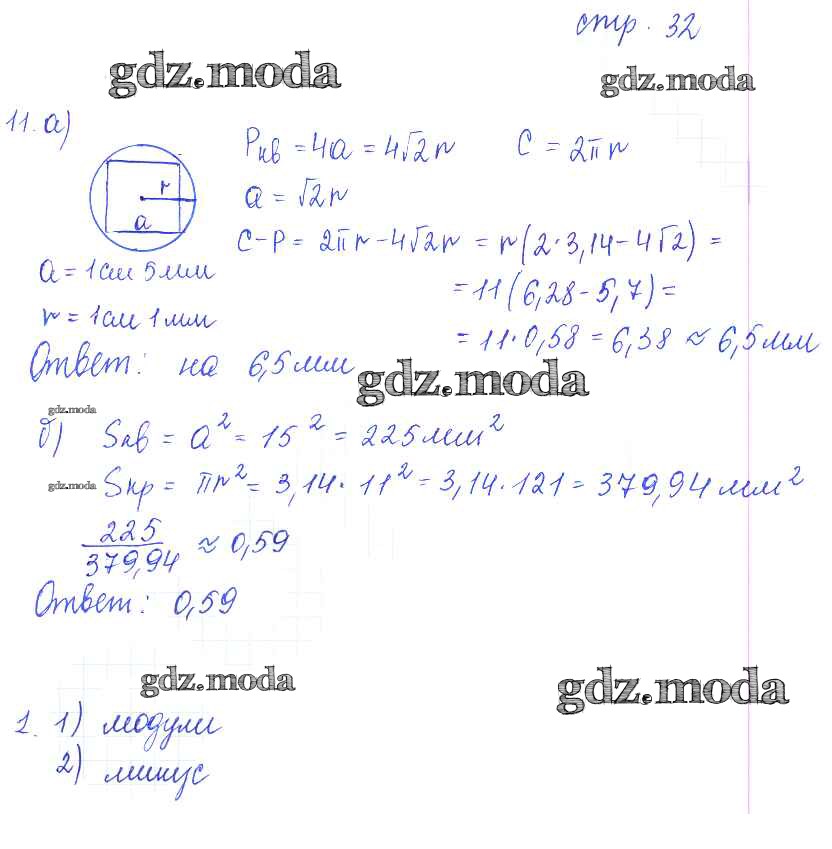 стр. 32
gdz.moda
gdz.moda
11. а)
Pкв = 4a = 4√2r   C = 2πr
a = √2r
r
a
C-P = 2πr - 4√2r = r(2·3,14 - 4√2) =
= 11(6,28 - 5,7) =
= 11·0,58 = 6,38 ≈ 6,5 мм
a = 1 см 5 мм
r = 1 см 1 мм
Ответ: на 6,5 мм
gdz.moda
gdz.moda
б) Sкв = a² = 15² = 225 мм²
gdz.moda
Sкр = πr² = 3,14·11² = 3,14·121 = 379,94 мм²
225/379,94 ≈ 0,59
Ответ: 0,59
gdz.moda
gdz.moda
1. 1) модули
2) минус